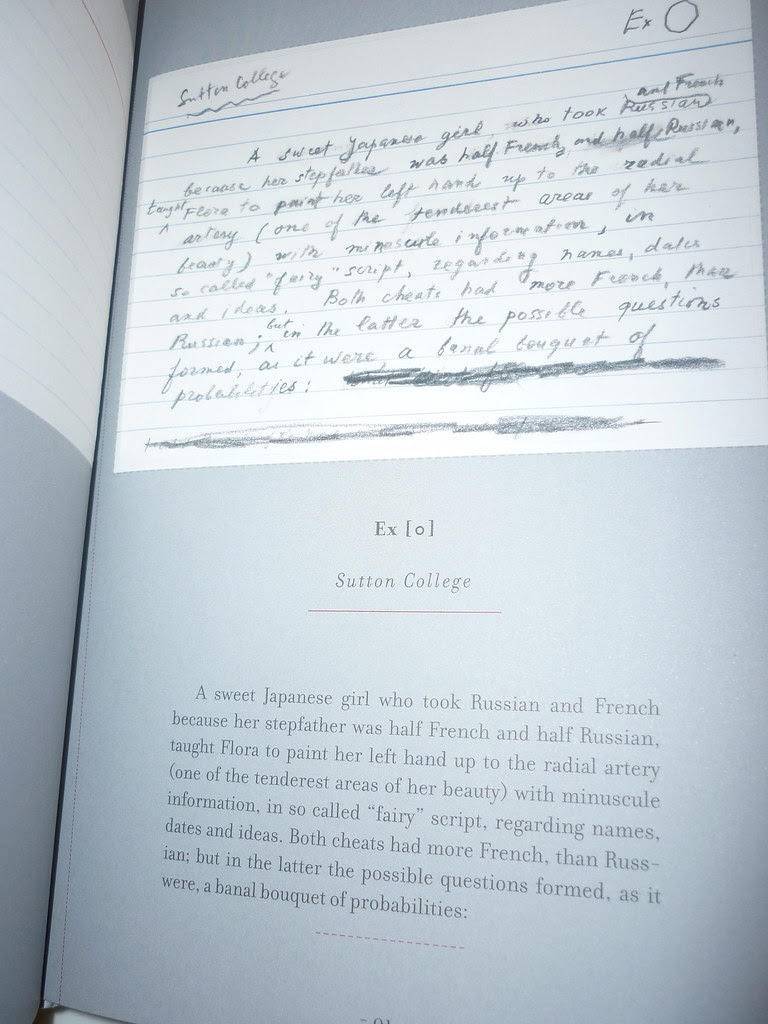 Ex O
Sutton College
and French
A sweet Japanese girl, who took Russian
because her stepfather was half French and half Russian,
taught Flora to paint her left hand up to the radial
artery (one of the tenderest areas of her
beauty) with minuscule information, in
so called "fairy" script, regarding names, dates
and ideas. Both cheats had more French, than
Russian; but in the latter the possible questions
formed, as it were, a banal bouquet of
probabilities:
Ex [o]
Sutton College
A sweet Japanese girl who took Russian and French
because her stepfather was half French and half Russian,
taught Flora to paint her left hand up to the radial artery
(one of the tenderest areas of her beauty) with minuscule
information, in so called “fairy” script, regarding names,
dates and ideas. Both cheats had more French, than Russ-
ian; but in the latter the possible questions formed, as it
were, a banal bouquet of probabilities: